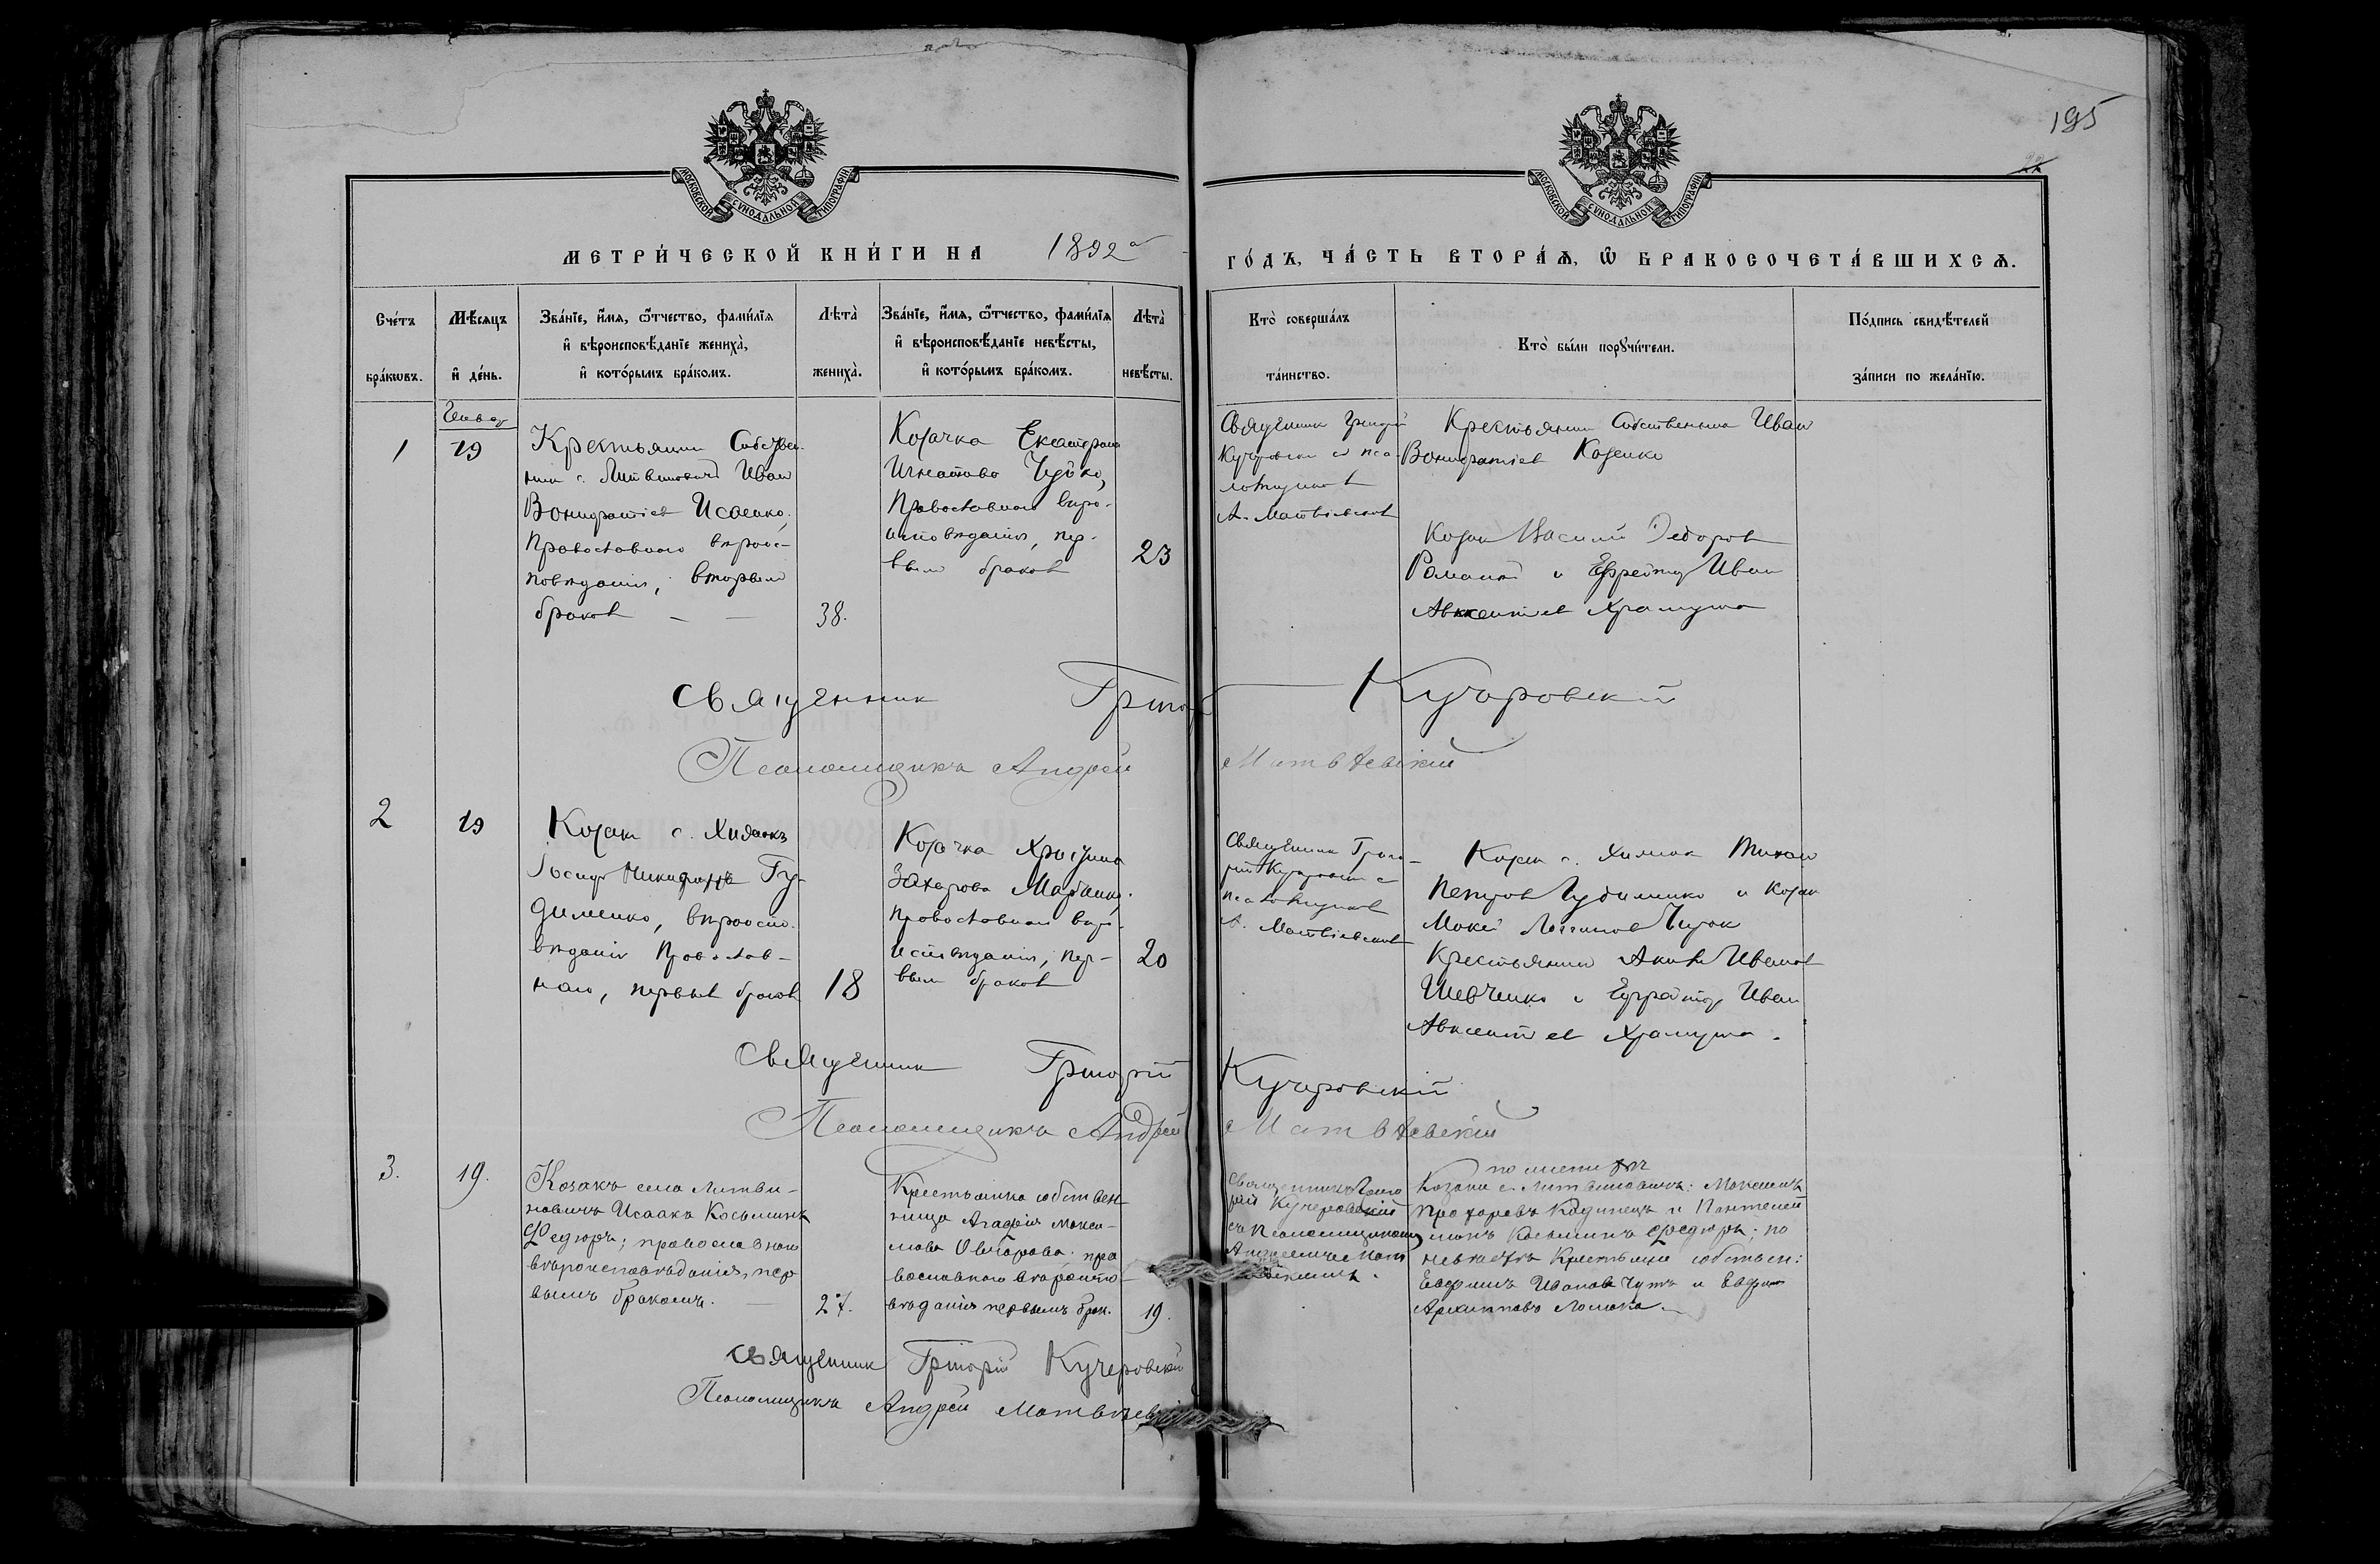 195
МОСКОВСКОЙ СУНОДАЛЬНОЙ ТИПОГРАФІИ
МОСКОВСКОЙ СУНОДАЛЬНОЙ ТИПОГРАФІИ
МЕТРИ́ЧЕСКОЙ КНИ́ГИ НА 1892
ГО́ДЪ, ЧА́СТЬ ВТОРА́Ѧ, Ѿ БРАКОСОЧЕТА́ВШИХСѦ.
Сче́тъ
бра́кѡвъ.
Мѣ́сяцъ
и҆ де́нь.
Зва́нїе, и҆́мѧ, ѻ҆́тчество, фами́лїѧ
и҆ вѣроисповѣ́данїе жениха̀,
и҆ кото́рымъ бра́комъ.
Лѣта̀
жениха̀.
Зва́нїе, и҆́мѧ, ѻ҆́тчество, фами́лїѧ
и҆ вѣроисповѣ́данїе невѣ́сты,
и҆ кото́рымъ бра́комъ.
Лѣта̀
невѣ́сты.
Кто̀ соверша́лъ
та́инство.
Кто̀ бы́ли порꙋчи́тели.
По́дпись свидѣ́телей
за́писи по жела́нїю.
1
19
Крестьянин Собствен-
ник с. Литвиновичъ Иван
Вонифатіев Исаенко,
Православнаго вѣроис-
повѣданія, вторым
браком
38.
Козачка Екатерина
Игнатова Чубко,
Православнаго вѣро-
исповѣданія, пер-
вым браком
23
Священник Григорій
Кучеровскій с пса-
ломщиком
А. Матвіевским
Крестьянин Собственник Иван
Вонифатіев Козенко
Козак Василій Федоров
и Ефрейтор Иван
Авксентіев Храмуша
Священник Григорій Кучеровскій
Псаломщикъ Андрей Матвѣевскій
2
19
Козак с.
Никифоровъ Гу-
дименко, вѣроиспо-
вѣданія Православ-
наго, первым браком
18
Козачка Христина
Захарова
православнаго вѣро-
исповѣданія, пер-
вым браком
20
Священник Григо-
рій Кучеровскій с
псаломщиком
А. Матвіевским
Козак с.
Петров Гудименко и Козак
Мокей Логинов
Крестьянин Яков Иванов
Шевченко и Ефрейтор Иван
Авксентіев Храмуша.
Священник Григорій Кучеровскій
Псаломщикъ Андрей Матвѣевскій
3.
19.
Козакъ села Литви-
новичъ Исаакъ Косьминъ
Федюръ; православнаго
вѣроисповѣданія, пер-
вымъ бракомъ.
27.
Крестьянка собствен-
ница Агафія Макси-
мова Овчарова; пра
вославнаго вѣроиспо-
вѣданія первымъ брак.
19.
Священникъ Григо
рій Кучеровскій
съ Псаломщикомъ
Козаки с. Литвиновичъ: Максимъ
Прохоровъ Кодинецъ и Пантелей
монъ Косьминъ Федюръ; по
невѣстѣ Крестьяне собствен:
Евфимъ Ивановъ Чутъ и
Архиповъ Ломака.
Священник Григорій Кучеровскій
Псаломщикъ Андрей Матвѣевскій